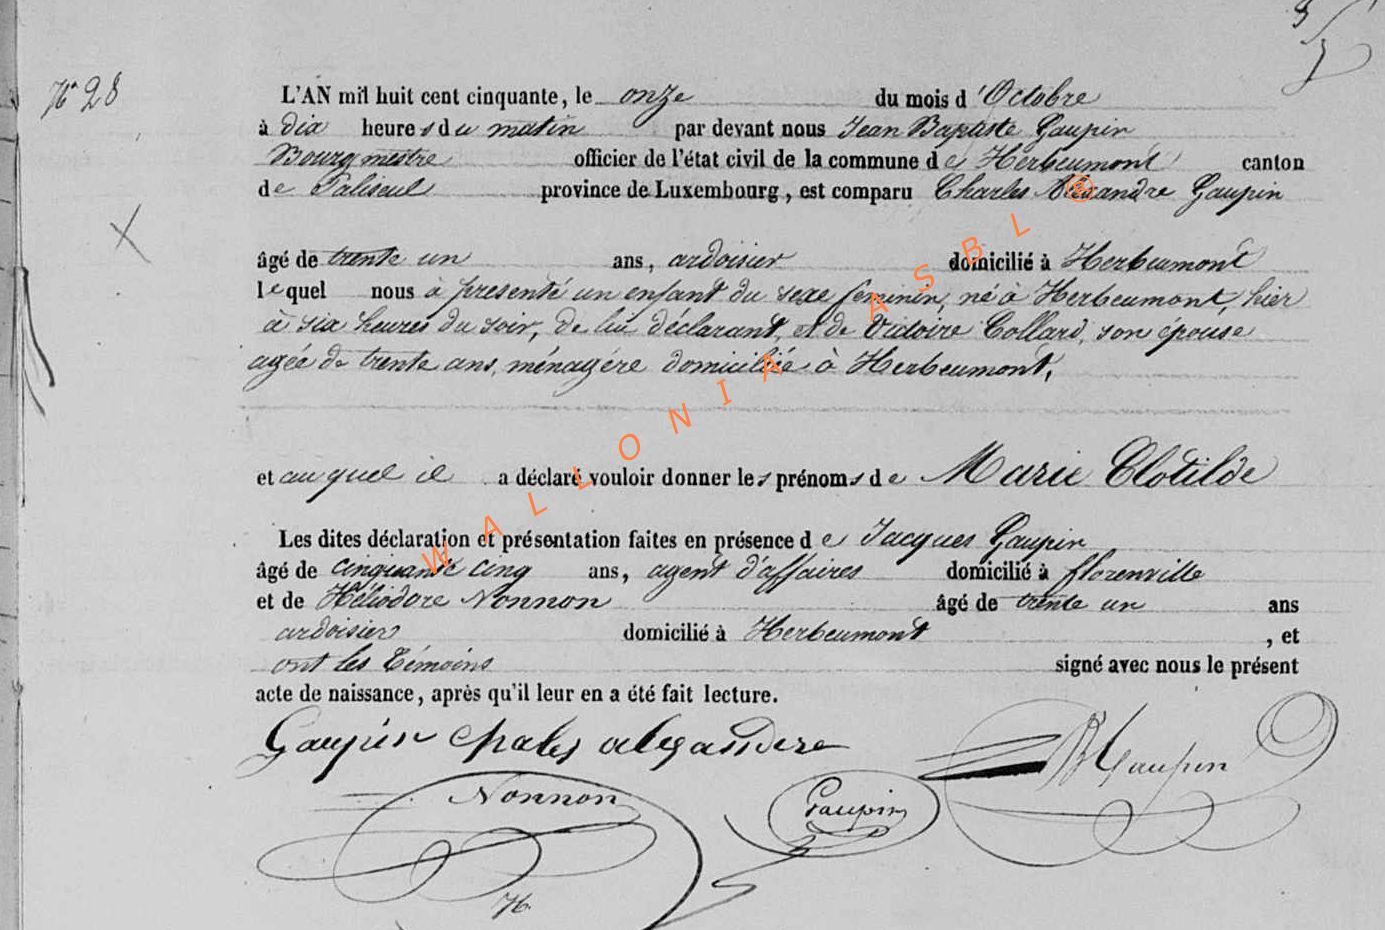 Nº 28
L'AN mil huit cent cinquante, le onze du mois d'Octobre
à dix heures du matin par devant nous Jean Baptiste Gaupin
Bourgmestre officier de l'état civil de la commune de Herbeumont canton
de Paliseul province de Luxembourg, est comparu Charles Alexandre Gaupin
âgé de trente un ans, ardoisier domicilié à Herbeumont
lequel nous à présenté un enfant du sexe feminin, né à Herbeumont, hier
à six heures du soir, de lui déclarant, et de Victoire Collard, son épouse
agée de trente ans, ménagère domiciliée à Herbeumont,
et auquel il a déclaré vouloir donner les prénoms de Marie Clotilde
Les dites déclaration et présentation faites en présence de Jacques Gaupin
âgé de cinquante cinq ans, agent d'affaires domicilié à florenville
et de Héliodore Nonnon âgé de trente un ans
ardoisier domicilié à Herbeumont, et
ont les témoins signé avec nous le présent
acte de naissance, après qu'il leur en a été fait lecture.
Gaupin chales alexandere
JB Gaupin
Nonnon
Gaupin
WALLONIA ASBL ®